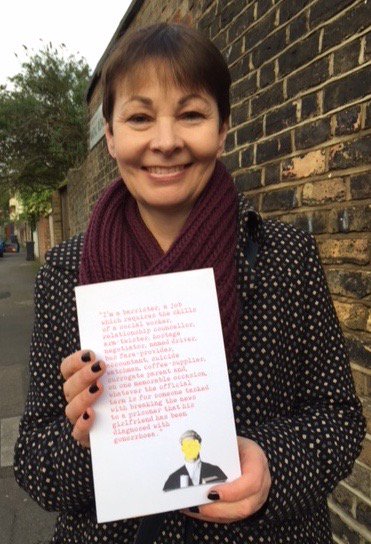 "I'm a barrister, a job
which requires the skills
of a social worker,
relationship counsellor,
arm twister, hostage
negotiator, named driver,
bus fare-provider,
accountant, suicide
watchman, coffee-supplier,
surrogate parent and,
on one memorable occasion,
whatever the official
term is for someone tasked
with breaking the news
to a prisoner that his
girlfriend has been
diagnosed with
gonorrhoea."